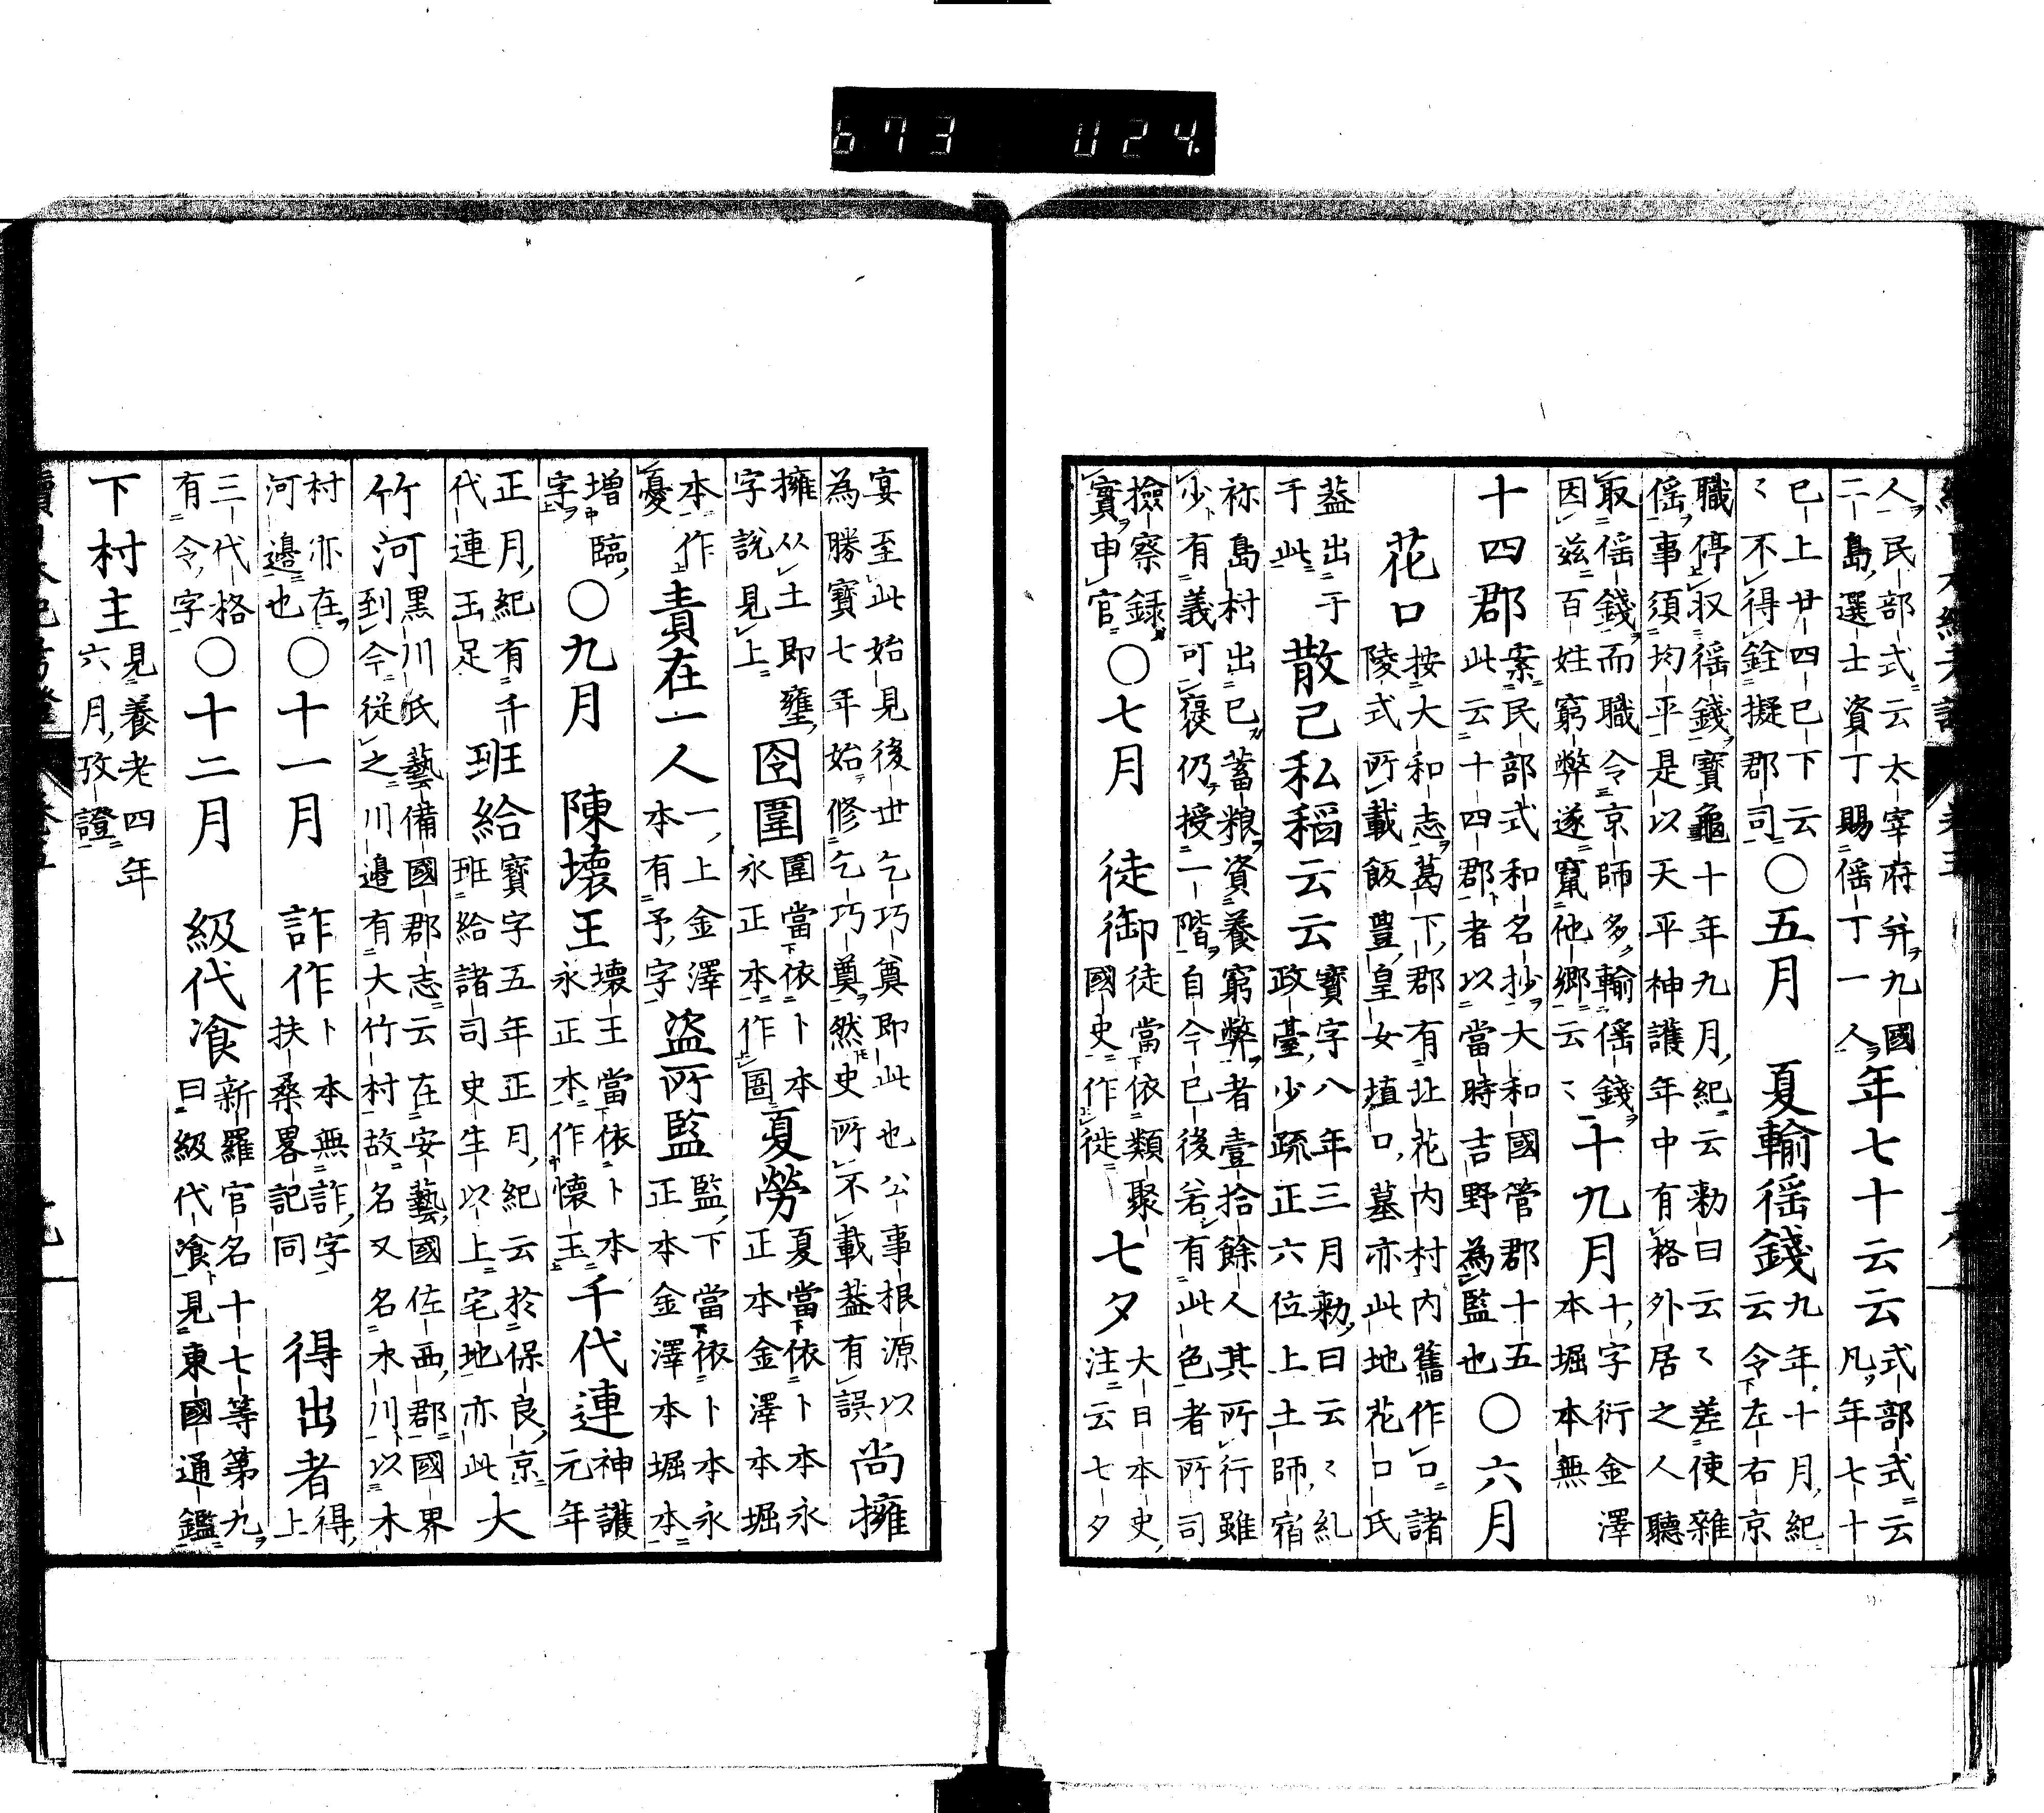 673 024.
人民部式云太宰府并九國
二島選士資丁賜徭丁一人
年七十云云
式部式云
凡年七十
已上廿四已下云
々不得銓擬郡司
○五月
夏輸徭錢
九年十月紀
云令左右京
職停収徭錢寶龜十年九月紀云勅曰云々差使雜
徭事須均平是以天平神護年中有格外居之人聽
取徭錢而職令京師多輸徭錢
因茲百姓窮弊遂竄他鄉云々
二十九月
十字衍金澤
本堀本無
十四郡
案民部式和名抄大和國管郡十五
此云十四郡者以當時吉野為監也
○六月
花口
按大和志葛下郡有北花内村内舊作口諸
陵式所載飯豐皇女埴口墓亦此地花口氏
葢出于
于此
散己私稲云云
寳字八年三月勅曰云々糺
政臺少疏正六位上土師宿
祢島村出己蓄粮資養窮弊者壹拾餘人其所行雖
少有義可襃仍授一階自今已後若有此色者所司
撿察録
實申官
○七月
徒御
徒當依類聚
國史作徙
七夕
大日本史
注云七夕
宴至此始見後世乞巧奠即此也公事根源以
為勝寶七年始修乞巧奠然史所不載葢有誤
尚擁
擁从土即壅
字説見上
囹圍
圍當依卜本
永正本作圖
夏勞
夏當依卜本永
正本金澤本堀
本作
憂
責在一人
一上金澤
本有予字
盜所監
監下當依卜本永
正本金澤本堀本
増臨
字
○九月
陳壞王
壞王當依卜本
永正本作懐玉
千代連
神護
元年
正月紀有千
代連玉足
班給
寶字五年正月紀云於保良京
班給諸司史生以上宅地亦此
大
竹河
黒川氏藝備國郡志云在安藝國佐西郡國界
到今從之川邉有大竹村故名又名木川以木
村亦在
河邉也
○十一月
詐作
卜本無詐字
扶桑畧記同
得出者
得
上
三代格
有令字
○十二月
級代飡
新羅官名十七等第九
曰級代飡見東國通鑑
下村主
見養老四年
六月攷證